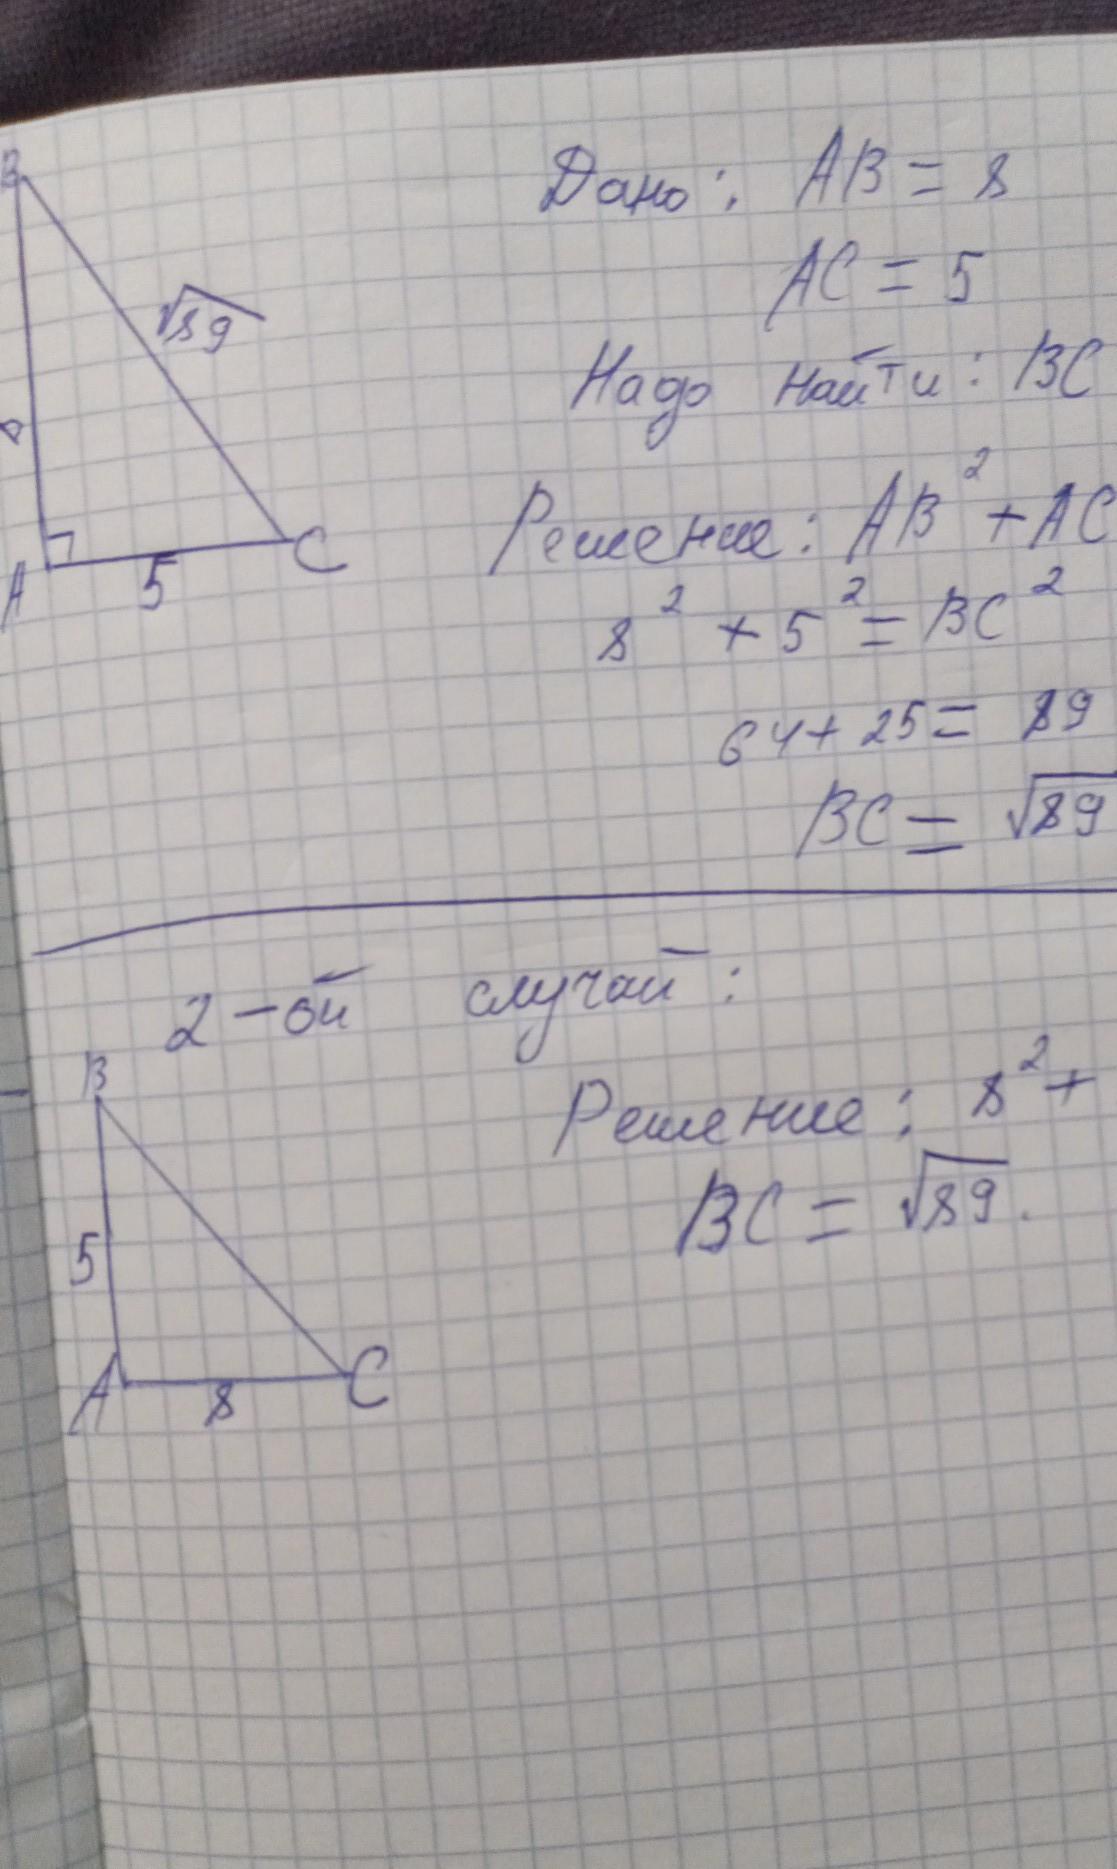 B
√89
8
A
5
C
Дано: AB = 8
AC = 5
Надо найти: BC
Решение: AB² + AC
8² + 5² = BC²
64 + 25 = 89
BC = √89
2-ой случай:
B
5
A
8
C
Решение: 8² +
BC = √89.